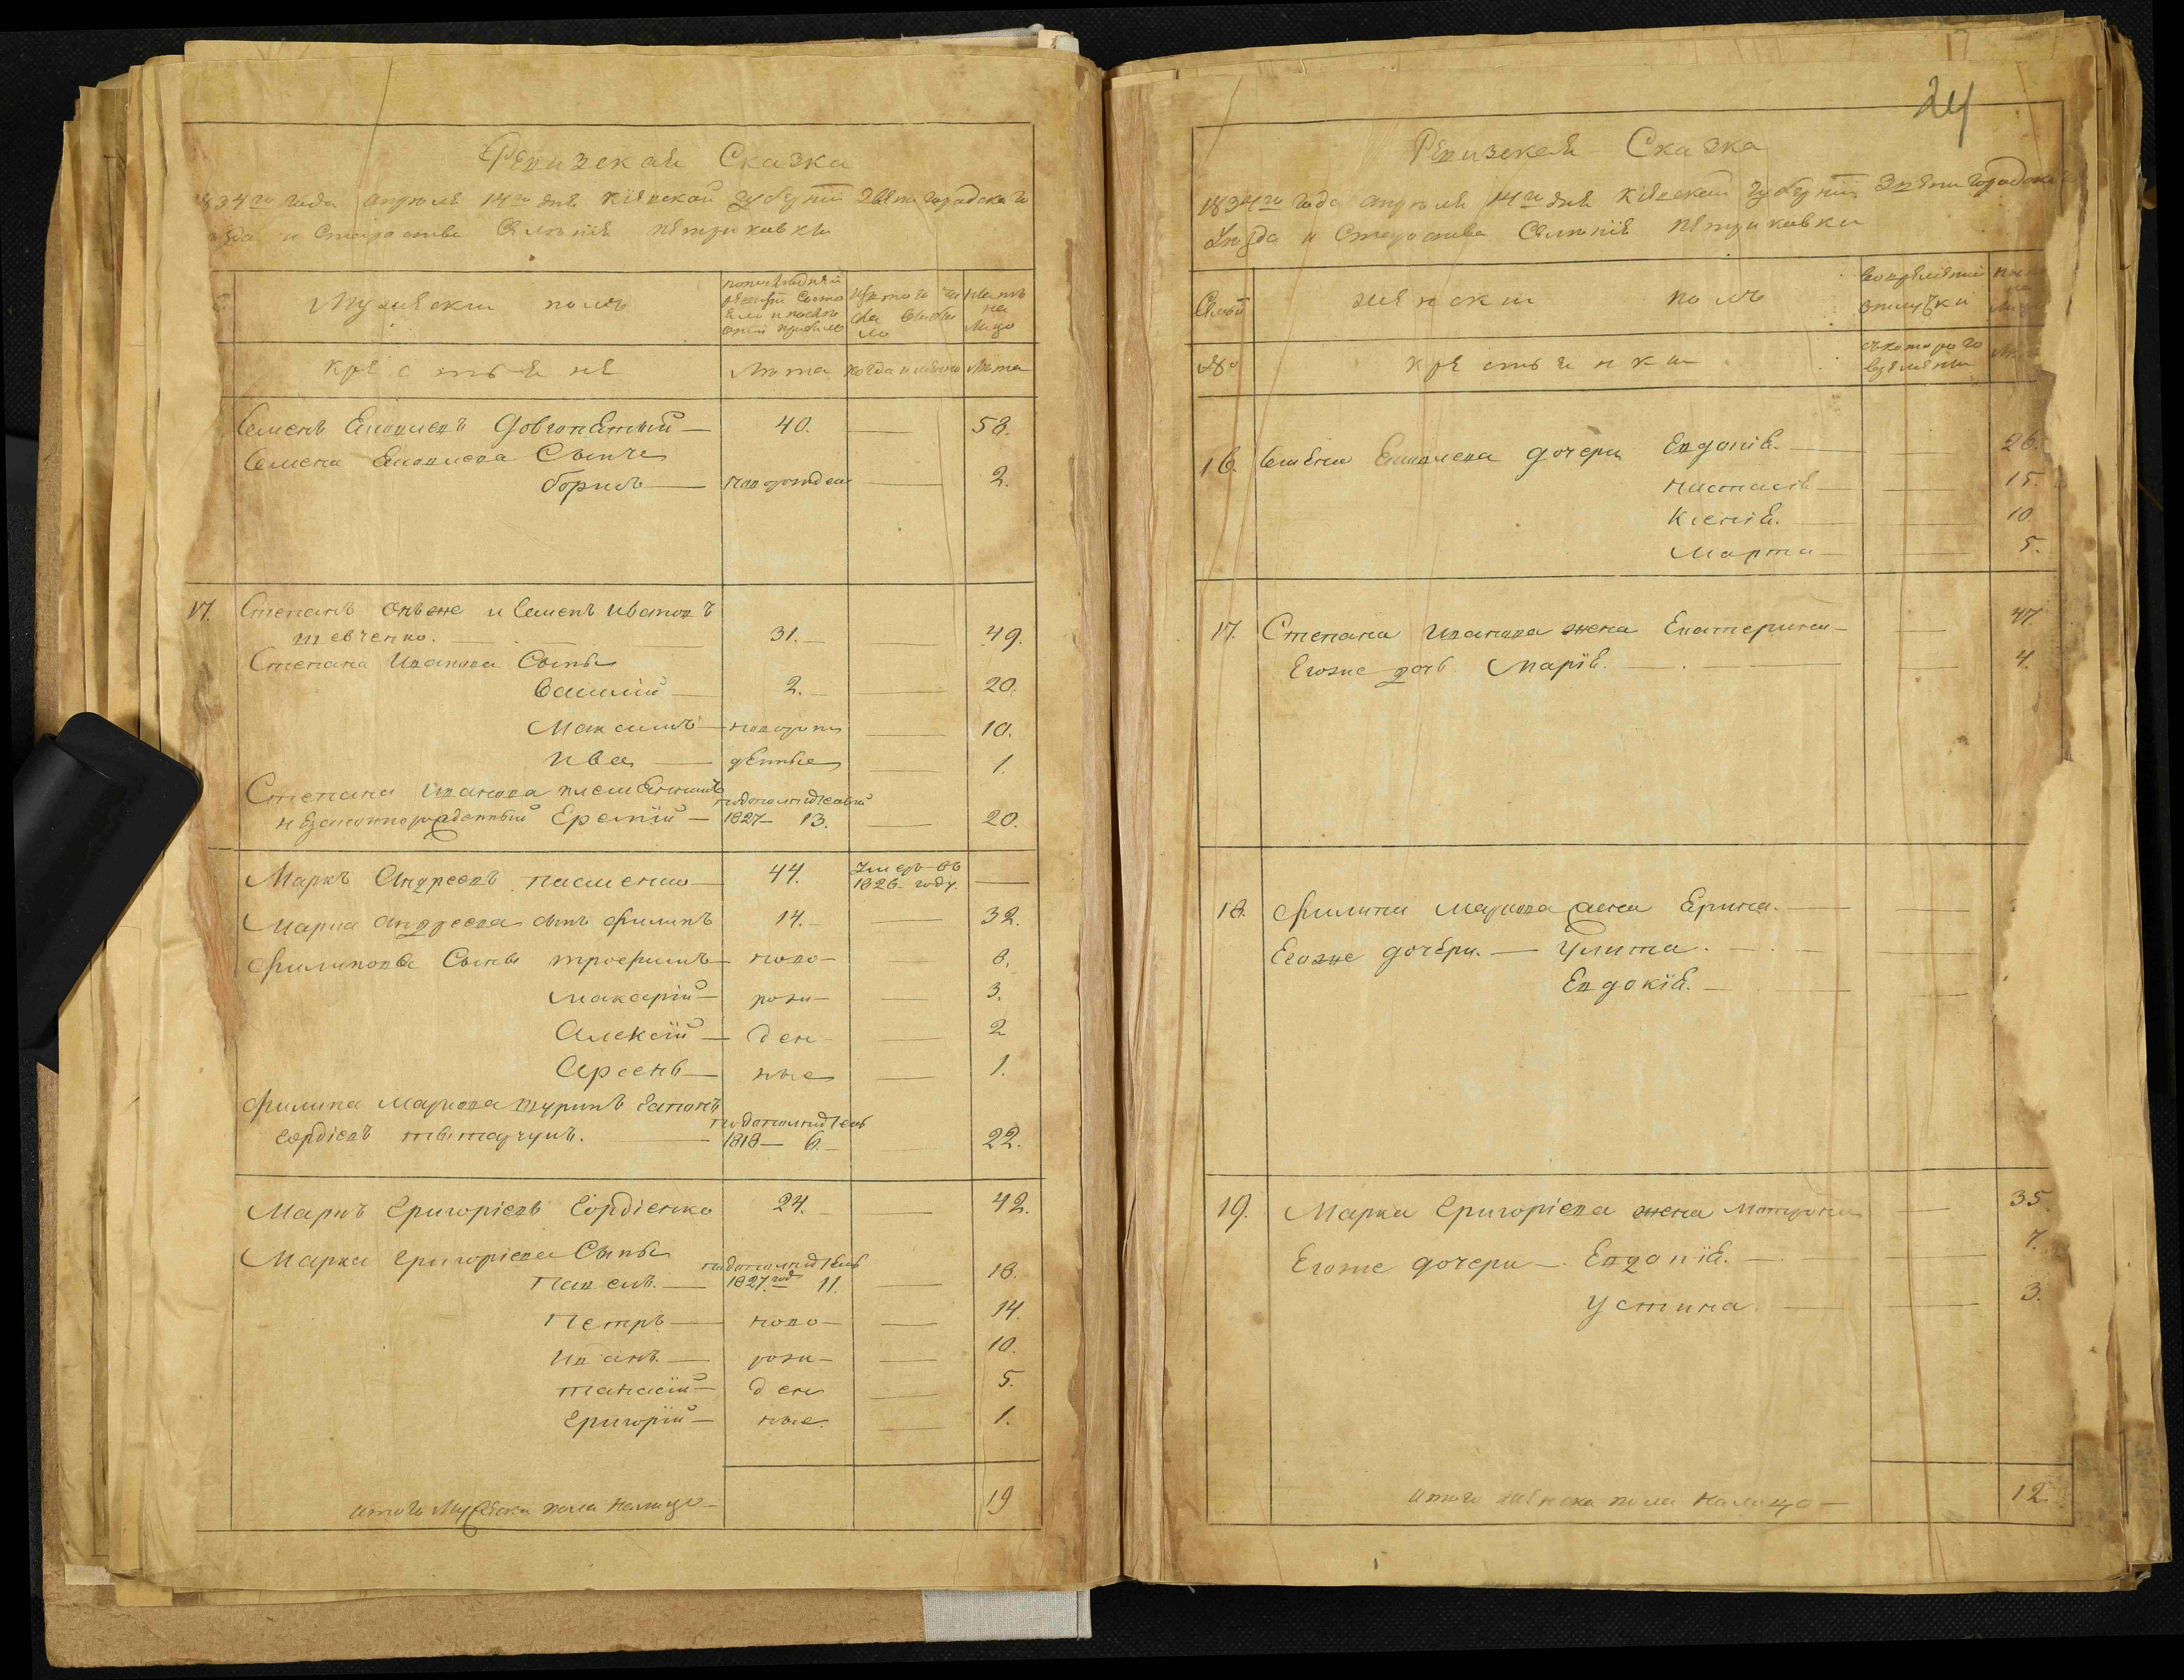 Ревизская Сказка
1834го года апреля 14го дня Кіевской губерніи Звенигородскаго
уезда и Староства Селенія Петриковки
Мужеский полъ
по последней ревизіи состояло и после оной прибыло
изъ того числа выбыло
ныне на лицо
крестьяне
Лета
когда именно
Лета
Семенъ Яковлевъ Довгопятый — 40. — 58.
Семена Яковлева Сынъ
борисъ — новорожден — 2.
17. Степанъ онъже и Семенъ Ивановъ
шевченко. — 31. — 49.
Степана Иванова Сыны
Василій — 2. — 20.
Максимъ — новорож — 10.
Иван — денные — 1.
Степана Иванова племянникъ
незаконнорожденный Еремій — 1827 — 13. — 20.
Маркъ Андреевъ пасменко — 44. Умеръ въ 1826 году. —
Марка Андреева сынъ филипъ 14. — 32.
филипова Сыны трофимъ — ново — 8.
Макарій — рож — 3.
Алексій — ден — 2
Арсень — ные — 1.
филипа Маркова шуринъ Гапонъ
Гордіевъ титаручукъ. — 1818 — 6. — 22.
Маркъ Григоріевъ Гордіенко 24. — 42.
Марка Григоріева Сыны
Павелъ. — 1827 год 11. — 18.
Петръ — ново — 14.
Иванъ. — рож — 10.
танасій — ден — 5.
Григорій — ные. — 1.
итого Мужеска пола налицо — 19
24
Ревизская Сказка
1834го года апреля 14го дня Кіевской губерніи Звенигородска
Уезда и Староства Селенія Петриковки
Семьи
женский полъ
во временной отлучки
№
крестьянки
съ котораго времени
16. Семена Яковлева дочери Евдокія. — 26.
Настасія — 15.
Ксенія. — 10
Марта — 5.
17. Степана Иванова жена Екатерина — 47.
Егоже дочь Марія. — 4.
18. филипа Маркова жена Ирина. —
Егоже дочери. — Улита. —
Евдокія. —
19. Марка Григоріева жена Мотрона — 35.
Егоже дочери — Евдокія. — 7.
Устина. — 3.
итого женска пола налицо — 12